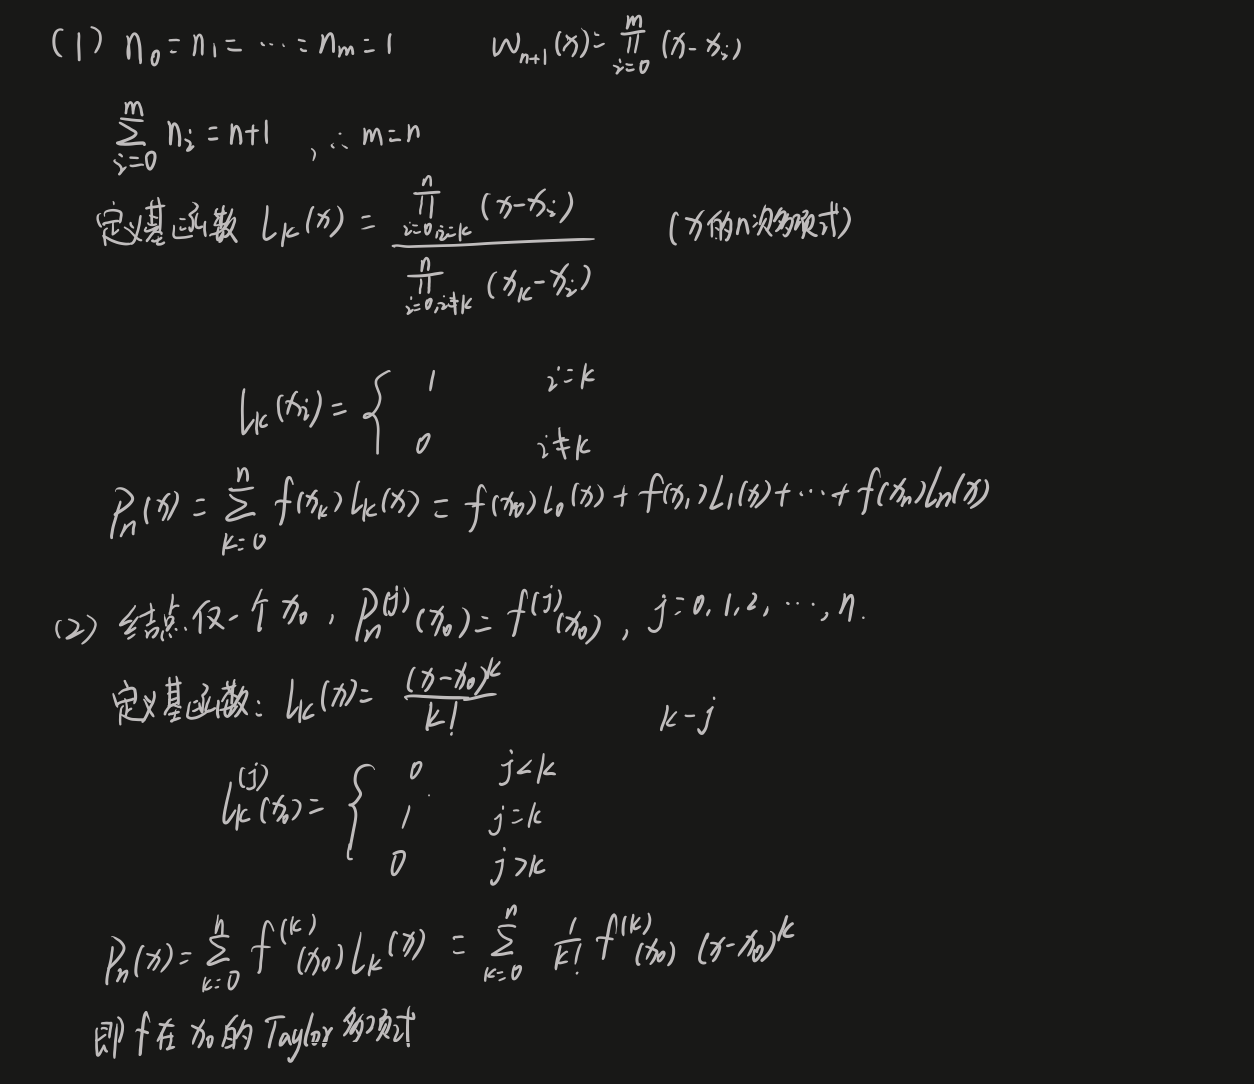 (1) n₀=n₁=⋯=nₘ=1 Wₙ₊₁(x)=∏_{i=0}^{m}(x-xᵢ)
∑_{i=0}^{m} nᵢ=n+1 , ∴ m=n
定义基函数 Lₖ(x) = \frac{∏_{i=0,i=k}^{n}(x-xᵢ)}{∏_{i=0,i≠k}^{n}(xₖ-xᵢ)} (x的n次多项式)
Lₖ(xᵢ) = { 1 i=k
0 i≠k
Pₙ(x) = ∑_{k=0}^{n} f(xₖ)Lₖ(x) = f(x₀)L₀(x) + f(x₁)L₁(x) + ⋯ + f(xₙ)Lₙ(x)
(2) 结点仅一个 x₀ , Pₙ^{(j)}(x₀) = f^{(j)}(x₀) , j=0,1,2,⋯,n.
定义基函数: Lₖ(x) = \frac{(x-x₀)^k}{k!} k-j
Lₖ^{(j)}(x₀) = { 0 j<k
1 j=k
0 j>k
Pₙ(x) = ∑_{k=0}^{n} f^{(k)}(x₀)Lₖ(x) = ∑_{k=0}^{n} \frac{1}{k!} f^{(k)}(x₀) (x-x₀)^k
即 f 在 x₀ 的 Taylor 多项式